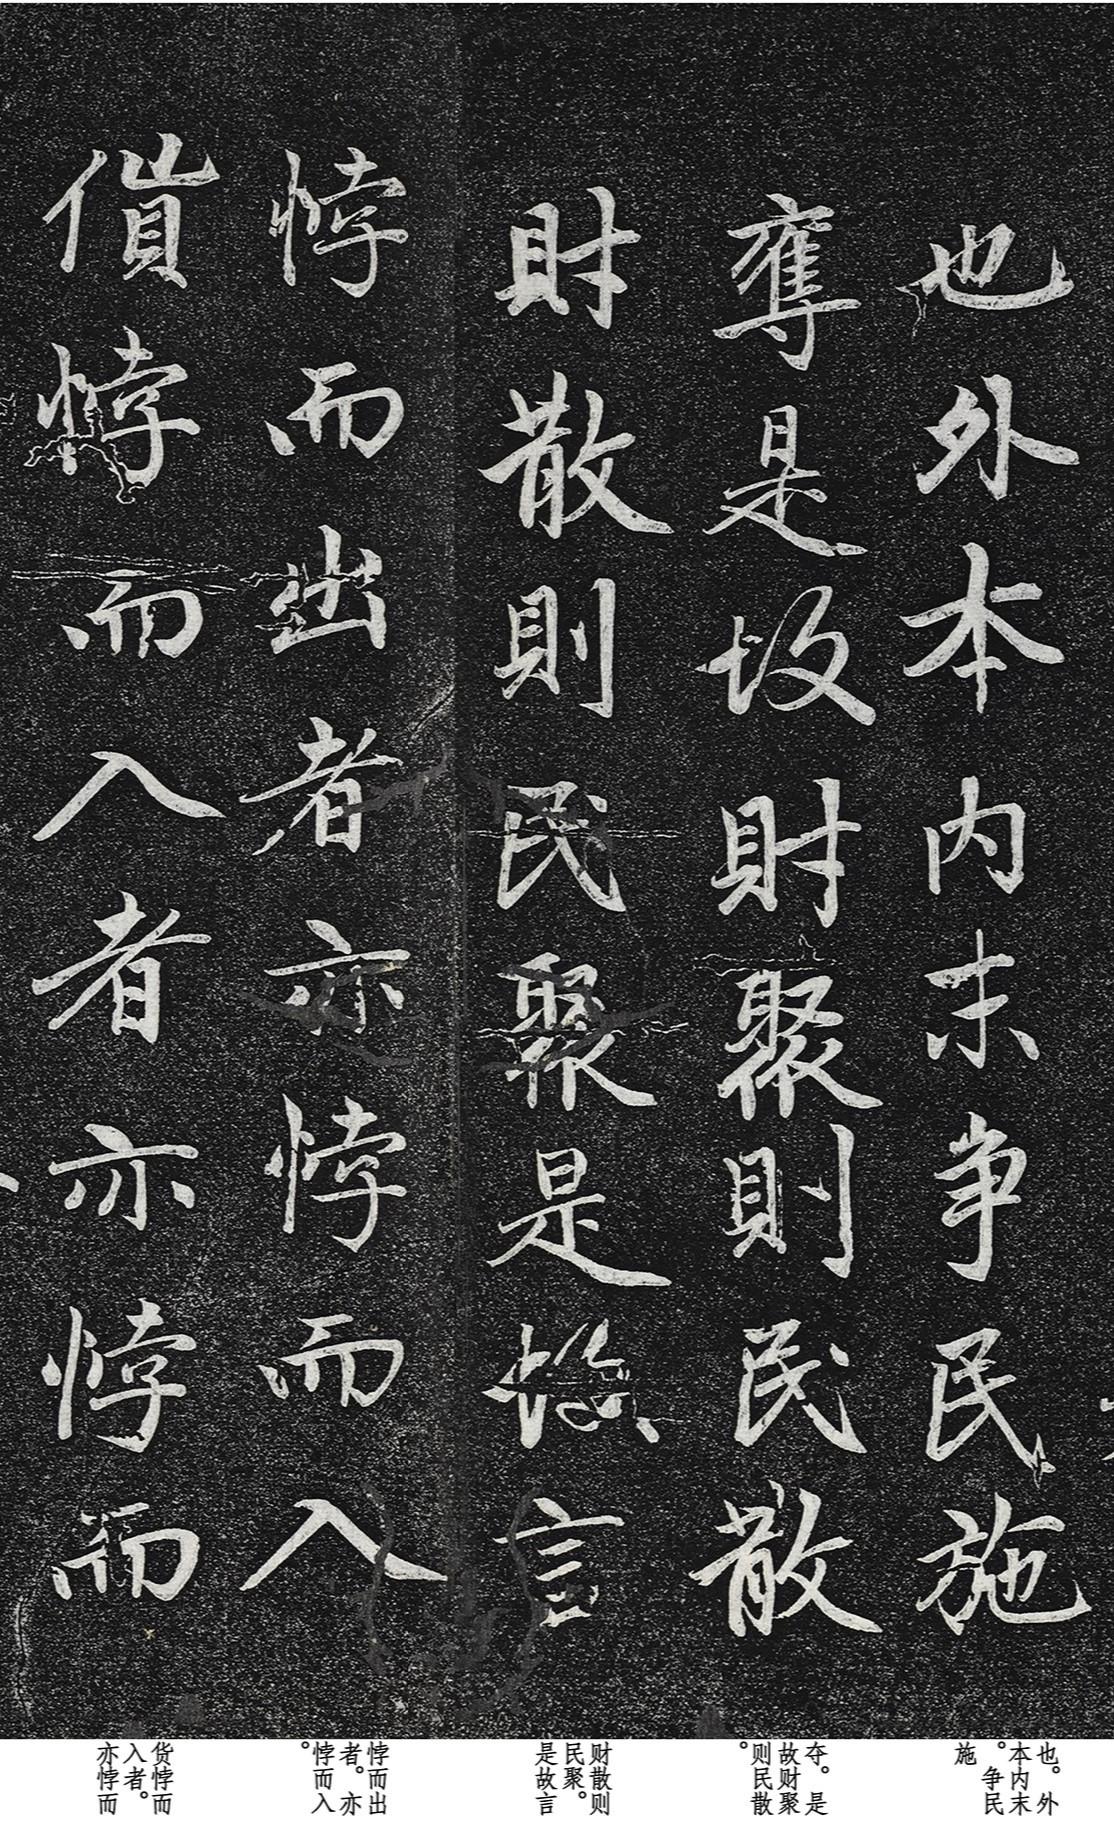 也外本内末争民施
奪是故財聚則民散
財散則民聚是故言
悖而出者亦悖而入
貨悖而入者亦悖而
也。外
本内末
。争民
施
夺。是
故财聚
则民散
。
财散则
民聚。
是故言
悖而出
者。亦
悖而入
。
货悖而
入者。
亦悖而